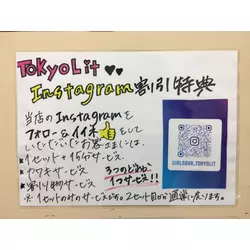 TOKYOLit ♥♥
Instagram割引特典
当店のInstagramを
フォロー&イイネ👍をして
いただいたお客さまには、
・1セット+15分サービス
・サービス
・割り物サービス
3つのどれか
1つサービス!!
※1セットのみのサービスです。2セット目から通常に戻ります。
GIRLSBAR_TOKYOLIT